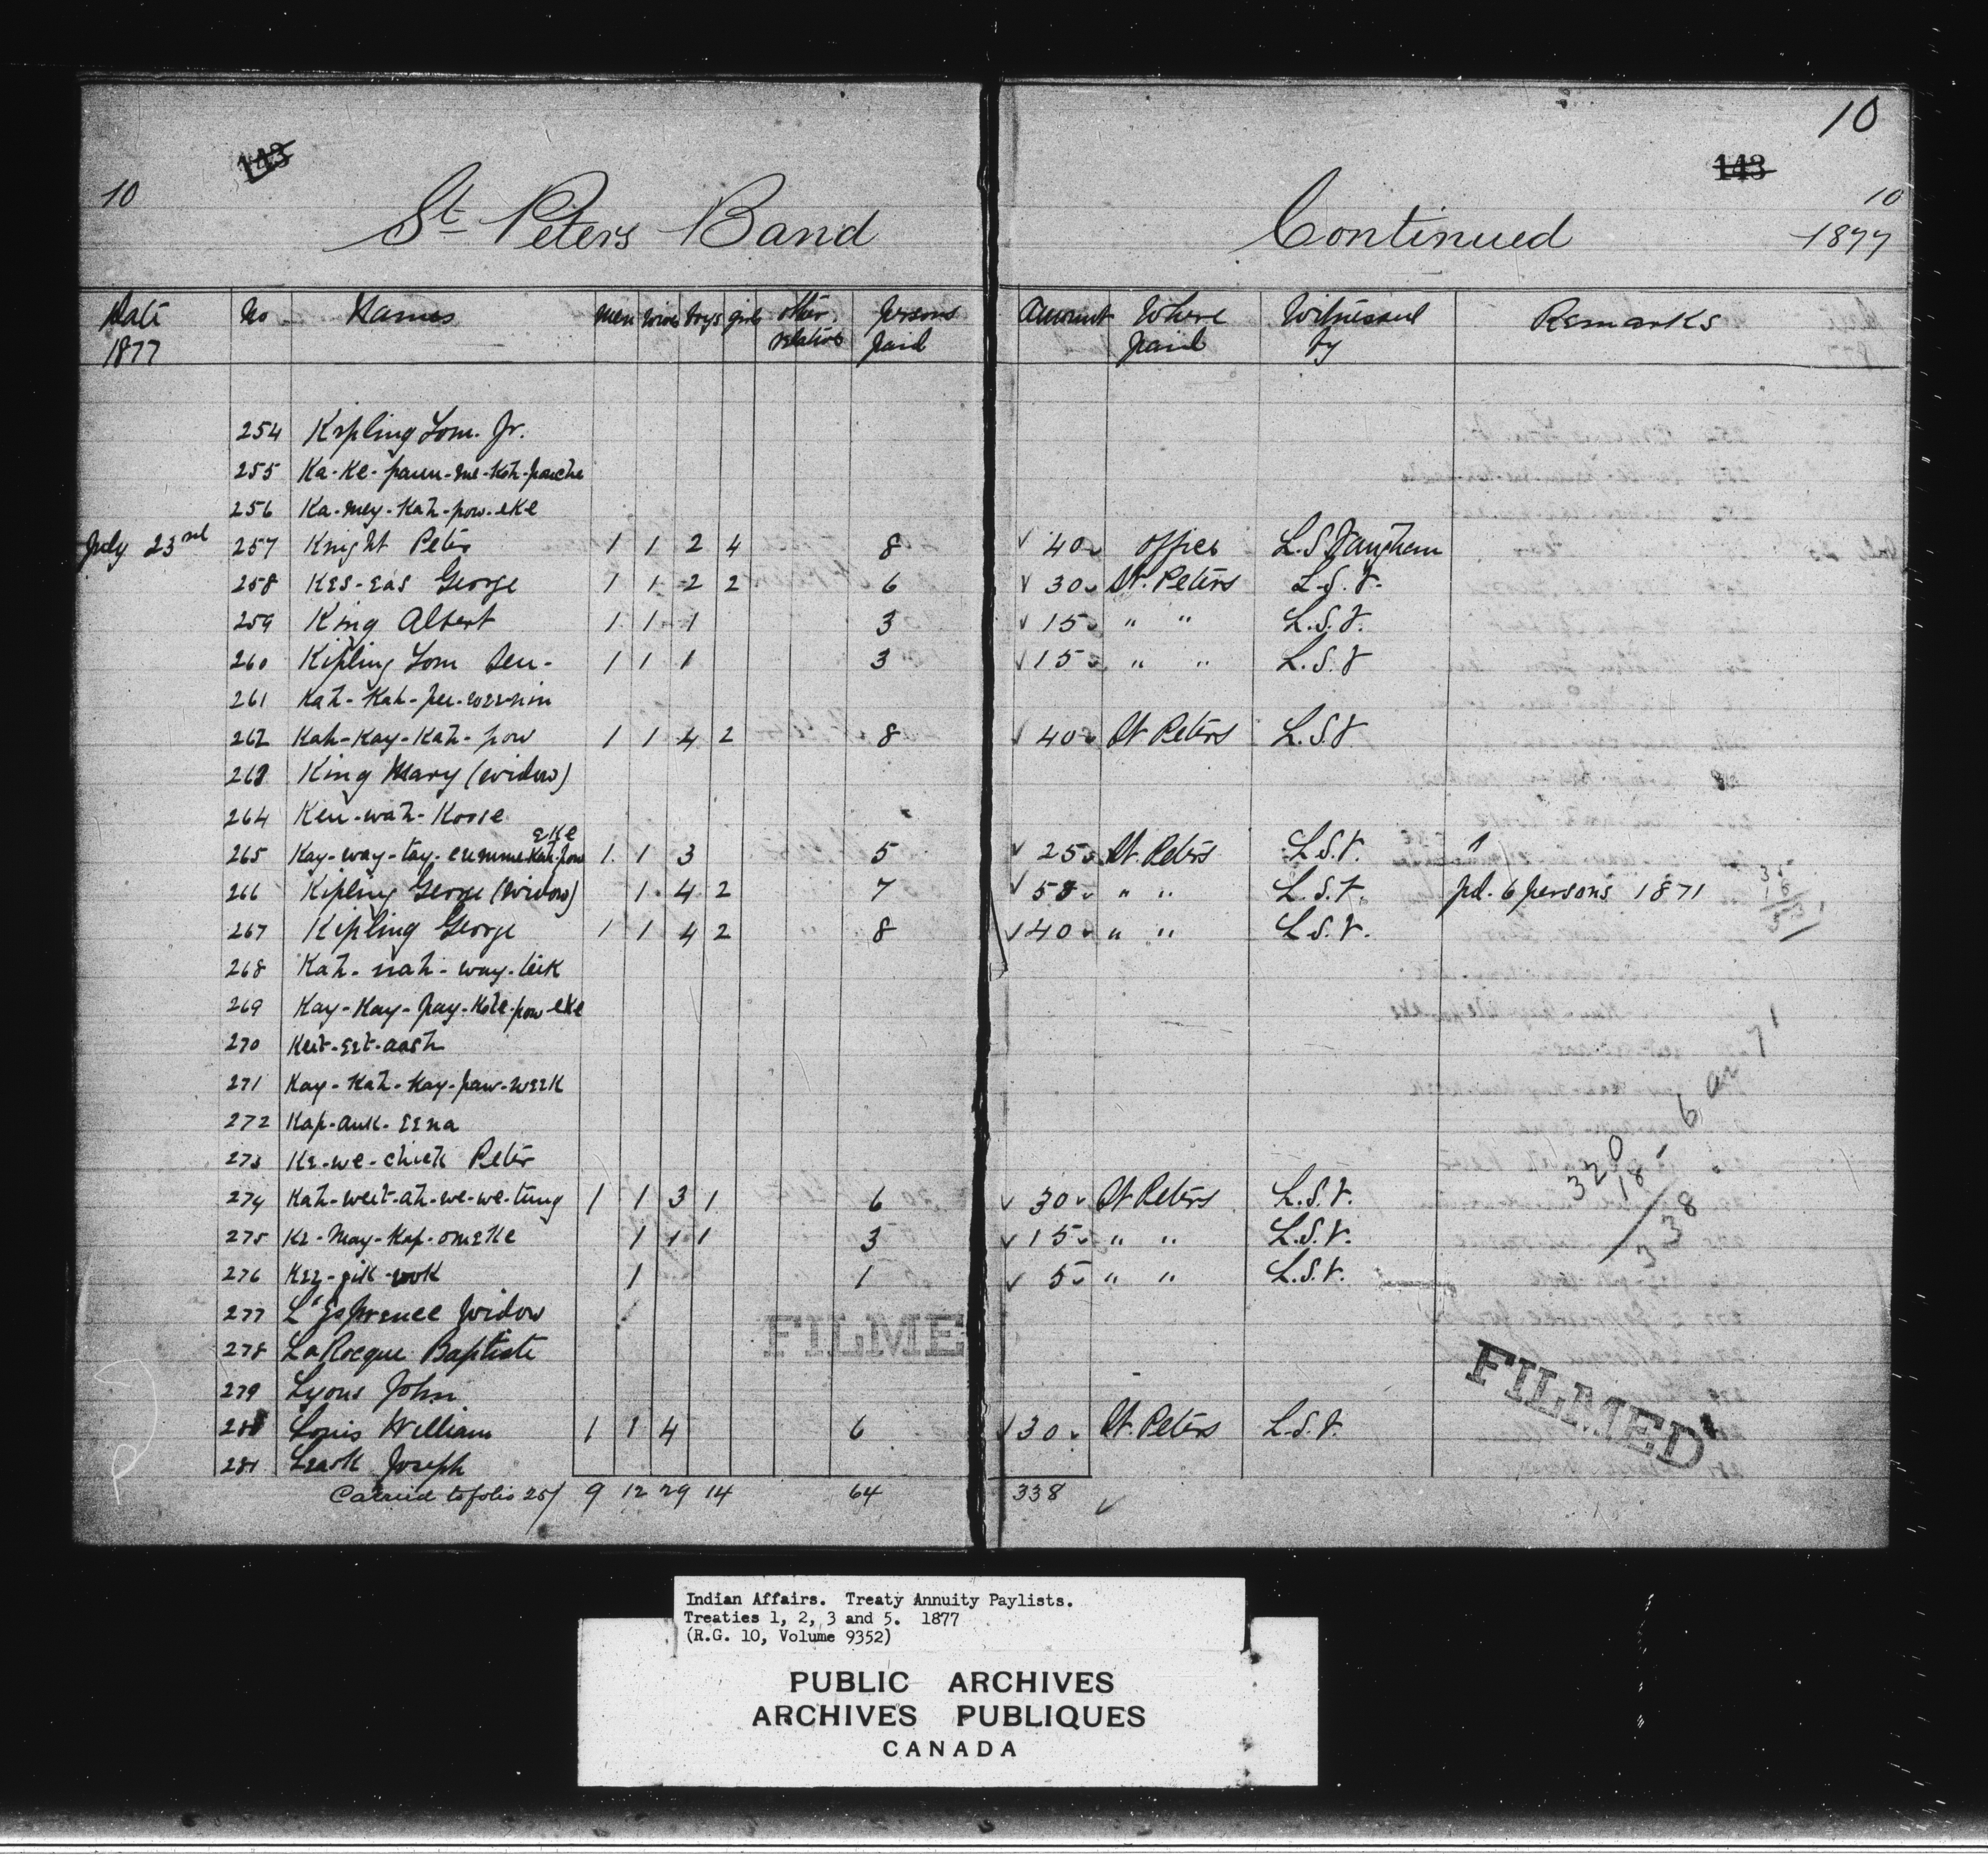 10
143
143
10
10
St. Peters Band Continued 1877
Date 1877 No Names men wives boys girls other relatives persons paid Amount Where paid Witnessed by Remarks
254 Kipling Tom. Jr.
255 Ka-Ke-
256 Ka-mey-Kah-pow-eke
July 23rd 257 Knight Peter 1 1 2 4 8 40 office L.S. Vaughan
258 Kes-eas George 1 1 2 2 6 30 St. Peters L.S.V.
259 King Albert 1 1 1 3 15 " " L.S.V.
260 Kipling Tom Sen- 1 1 1 3 15 " " L.S.V
261 Kah-Kah-pee-wee-nin
262 Kah-Kay-Kah-pow 1 1 4 2 8 40 St Peters L.S.V
263 King Mary (widow)
264 Ken-wah-Koose
265 Kay-way-tay-cumme-Kah-pow eke 1 1 3 5 25 St. Peters L.S.V. "
266 Kipling George (widow) 1 4 2 7 58 " " L.S.V. pd. 6 persons 1871
267 Kipling George 1 1 4 2 8 40 " " L.S.V.
268 Kah-nah-way-
269 Kay-Kay-pay- -pow-eke
270 Keit-eet-aash
271 Kay-Kah-Kay-paw-week
272 Kap-auk-eena
273 Ke-we-chick Peter
274 Kah-weet-ah-we-we-tung 1 1 3 1 6 30 St Peters L.S.V.
275 Ke-may-Kap-omeke 1 1 1 3 15 " " L.S.V.
276 Kee-jik-ook 1 1 5 " " L.S.V.
277 L'Esprence Widow
278 LaRocque Baptiste
279 Lyons John
280 Louis William 1 1 4 6 30 St. Peters L.S.V.
281 Leask Joseph
Carried to folio 25 9 12 29 14 64 338
6 or 7
320
18
338
FILME
FILMED
Indian Affairs. Treaty Annuity Paylists.
Treaties 1, 2, 3 and 5. 1877
(R.G. 10, Volume 9352)
PUBLIC ARCHIVES
ARCHIVES PUBLIQUES
CANADA